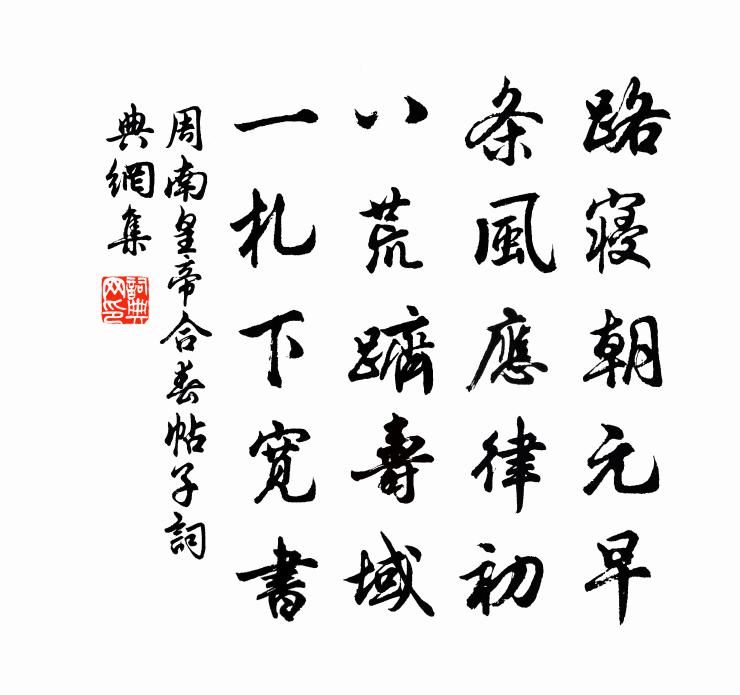 路寝朝元早
条風應律初
八荒躋壽域
一札下寛書
周南皇帝合春帖子詞
典網集
詞典網印